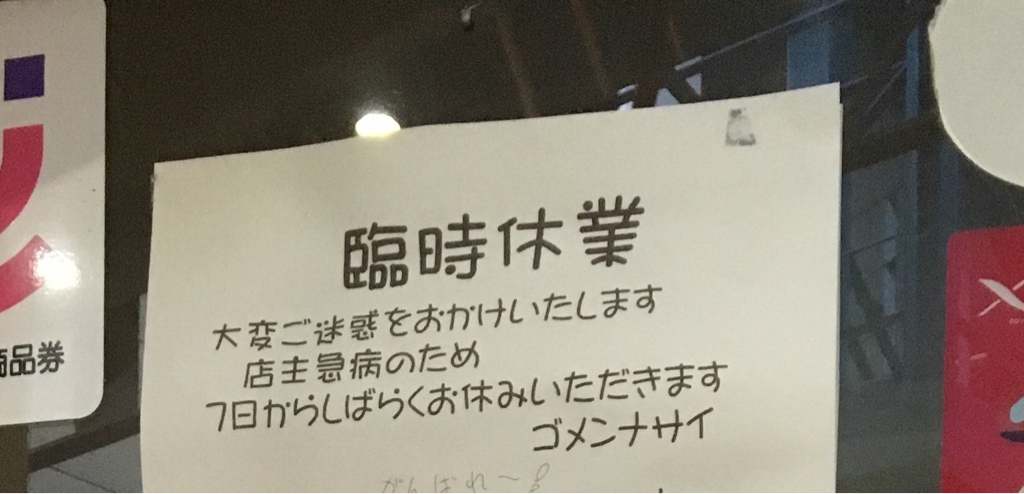 臨時休業
大変ご迷惑をおかけいたします
店主急病のため
7日からしばらくお休みいただきます
ゴメンナサイ
がんばれ〜!
商品券